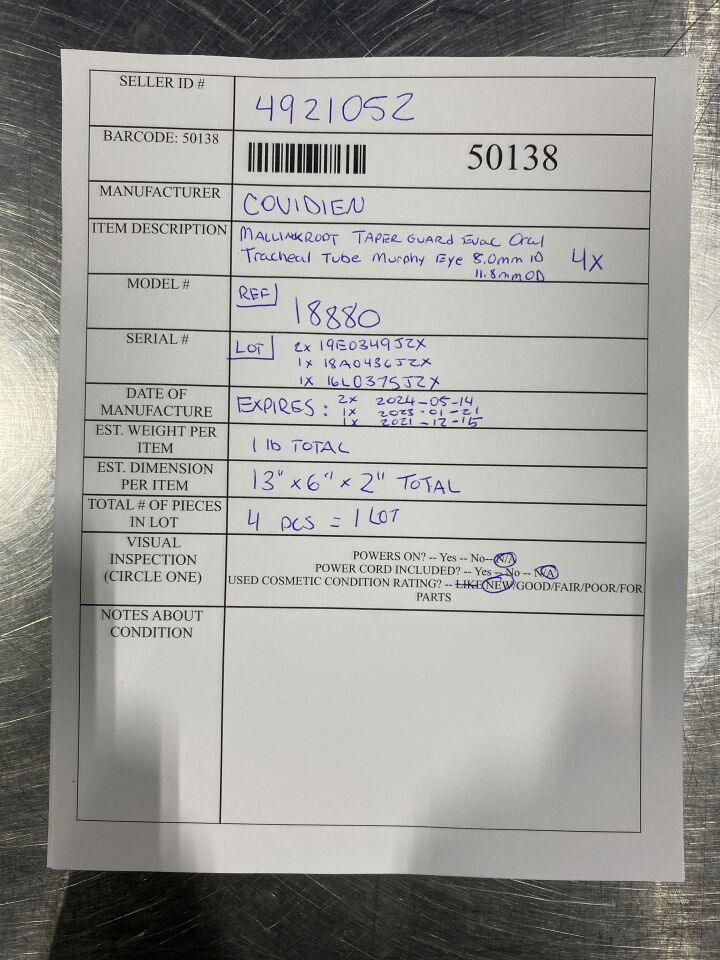 SELLER ID #
4921052
BARCODE: 50138
50138
MANUFACTURER
COVIDIEN
ITEM DESCRIPTION
MALLINKRODT TAPER GUARD EVAC Oral
Tracheal Tube Murphy Eye 8.0mm ID
11.8mm OD
4X
MODEL #
REF
18880
SERIAL #
LOT
2x 19E0349JZX
1x 18A0436JZX
1x 16L0375JZX
DATE OF
MANUFACTURE
EXPIRES: 2x 2024-05-14
1x 2023-01-21
1x 2021-12-15
EST. WEIGHT PER
ITEM
1 lb TOTAL
EST. DIMENSION
PER ITEM
13" x 6" x 2" TOTAL
TOTAL # OF PIECES
IN LOT
4 pcs = 1 LOT
VISUAL
INSPECTION
(CIRCLE ONE)
POWERS ON? -- Yes -- No-- N/A
POWER CORD INCLUDED? -- Yes -- No -- N/A
USED COSMETIC CONDITION RATING? -- LIKE NEW/GOOD/FAIR/POOR/FOR
PARTS
NOTES ABOUT
CONDITION